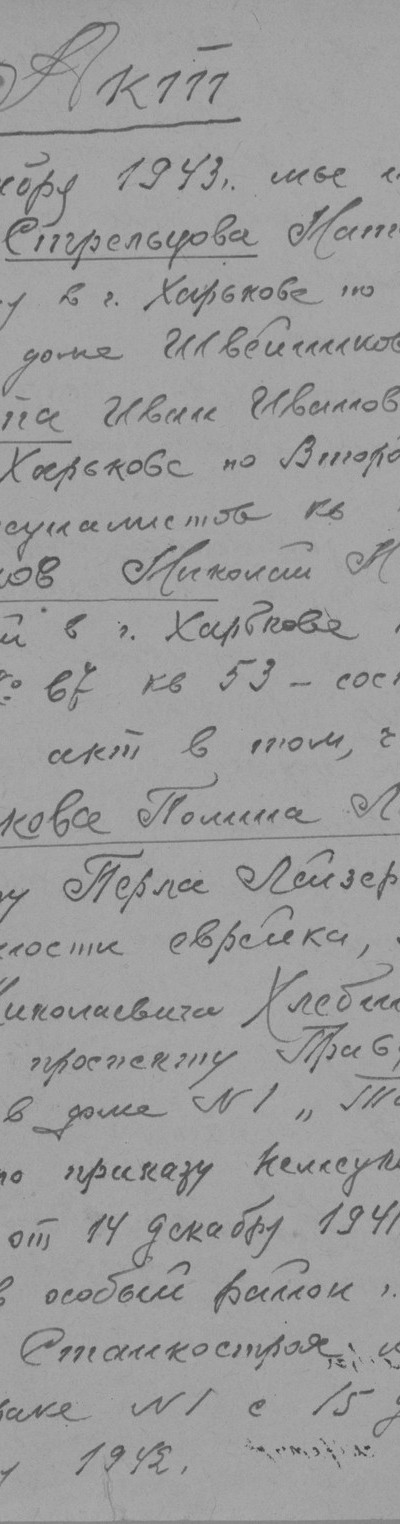 Акт
ября 1943. мы
Стрельцова Ната
в г. Харькове по
доме Швейников
та Иван Иванов
Харькове по Второ
сциалистов кв
ков Николай Н
й в г. Харькове
№ 67 кв 53 – сост
акт в том, ч
кова Полина Л
Перла Лейзер
ности еврейка,
Николаевича Хлебни
проспекту Прав
в доме N1 „
по приказу
от 14 декабря 1941
в особый район г.
Станкостроя
аке N1 с 15 д
1942.